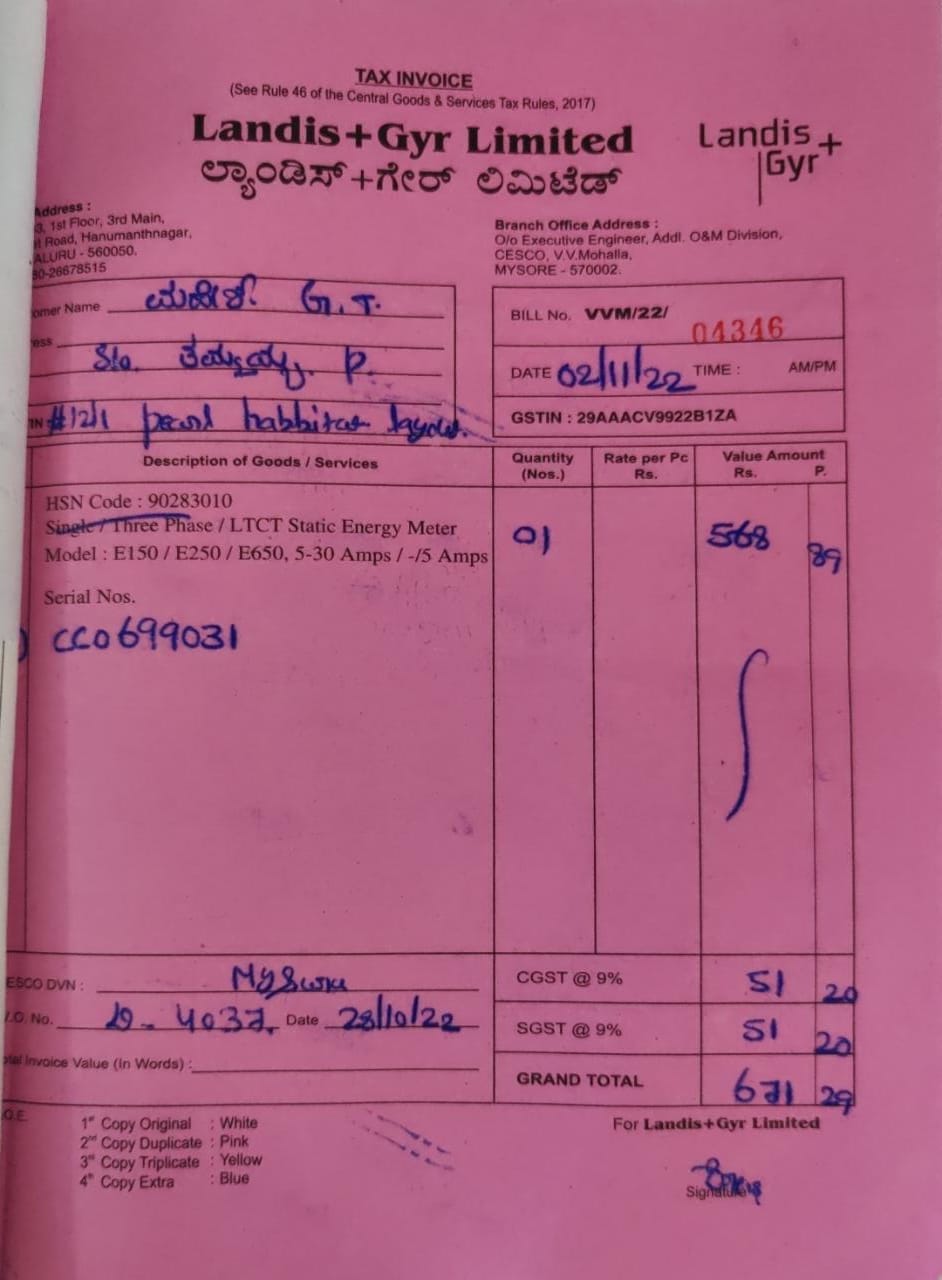 TAX INVOICE
(See Rule 46 of the Central Goods & Services Tax Rules, 2017)
Landis+Gyr Limited
ಲ್ಯಾಂಡಿಸ್+ಗೇರ್ ಲಿಮಿಟೆಡ್
Landis+
Gyr
Address :
3, 1st Floor, 3rd Main,
Road, Hanumanthnagar,
ALURU - 560050.
80-26678515
Branch Office Address :
O/o Executive Engineer, Addl. O&M Division,
CESCO, V.V.Mohalla,
MYSORE - 570002.
omer Name G.T.
ess S/o. P.
IN #12/1 pearl layout.
BILL No. VVM/22/ 04346
DATE 02/11/22 TIME : AM/PM
GSTIN : 29AAACV9922B1ZA
Description of Goods / Services Quantity (Nos.) Rate per Pc Rs. Value Amount Rs. P.
HSN Code : 90283010
Single / Three Phase / LTCT Static Energy Meter 01 568 89
Model : E150 / E250 / E650, 5-30 Amps / -/5 Amps
Serial Nos.
CC0699031
ESCO DVN :
CGST @ 9% 51 20
No. 4037. Date 28/10/22
SGST @ 9% 51 20
Invoice Value (In Words) :
GRAND TOTAL 671 29
O.E.
1st Copy Original : White
2nd Copy Duplicate : Pink
3rd Copy Triplicate : Yellow
4th Copy Extra : Blue
For Landis+Gyr Limited
Signature